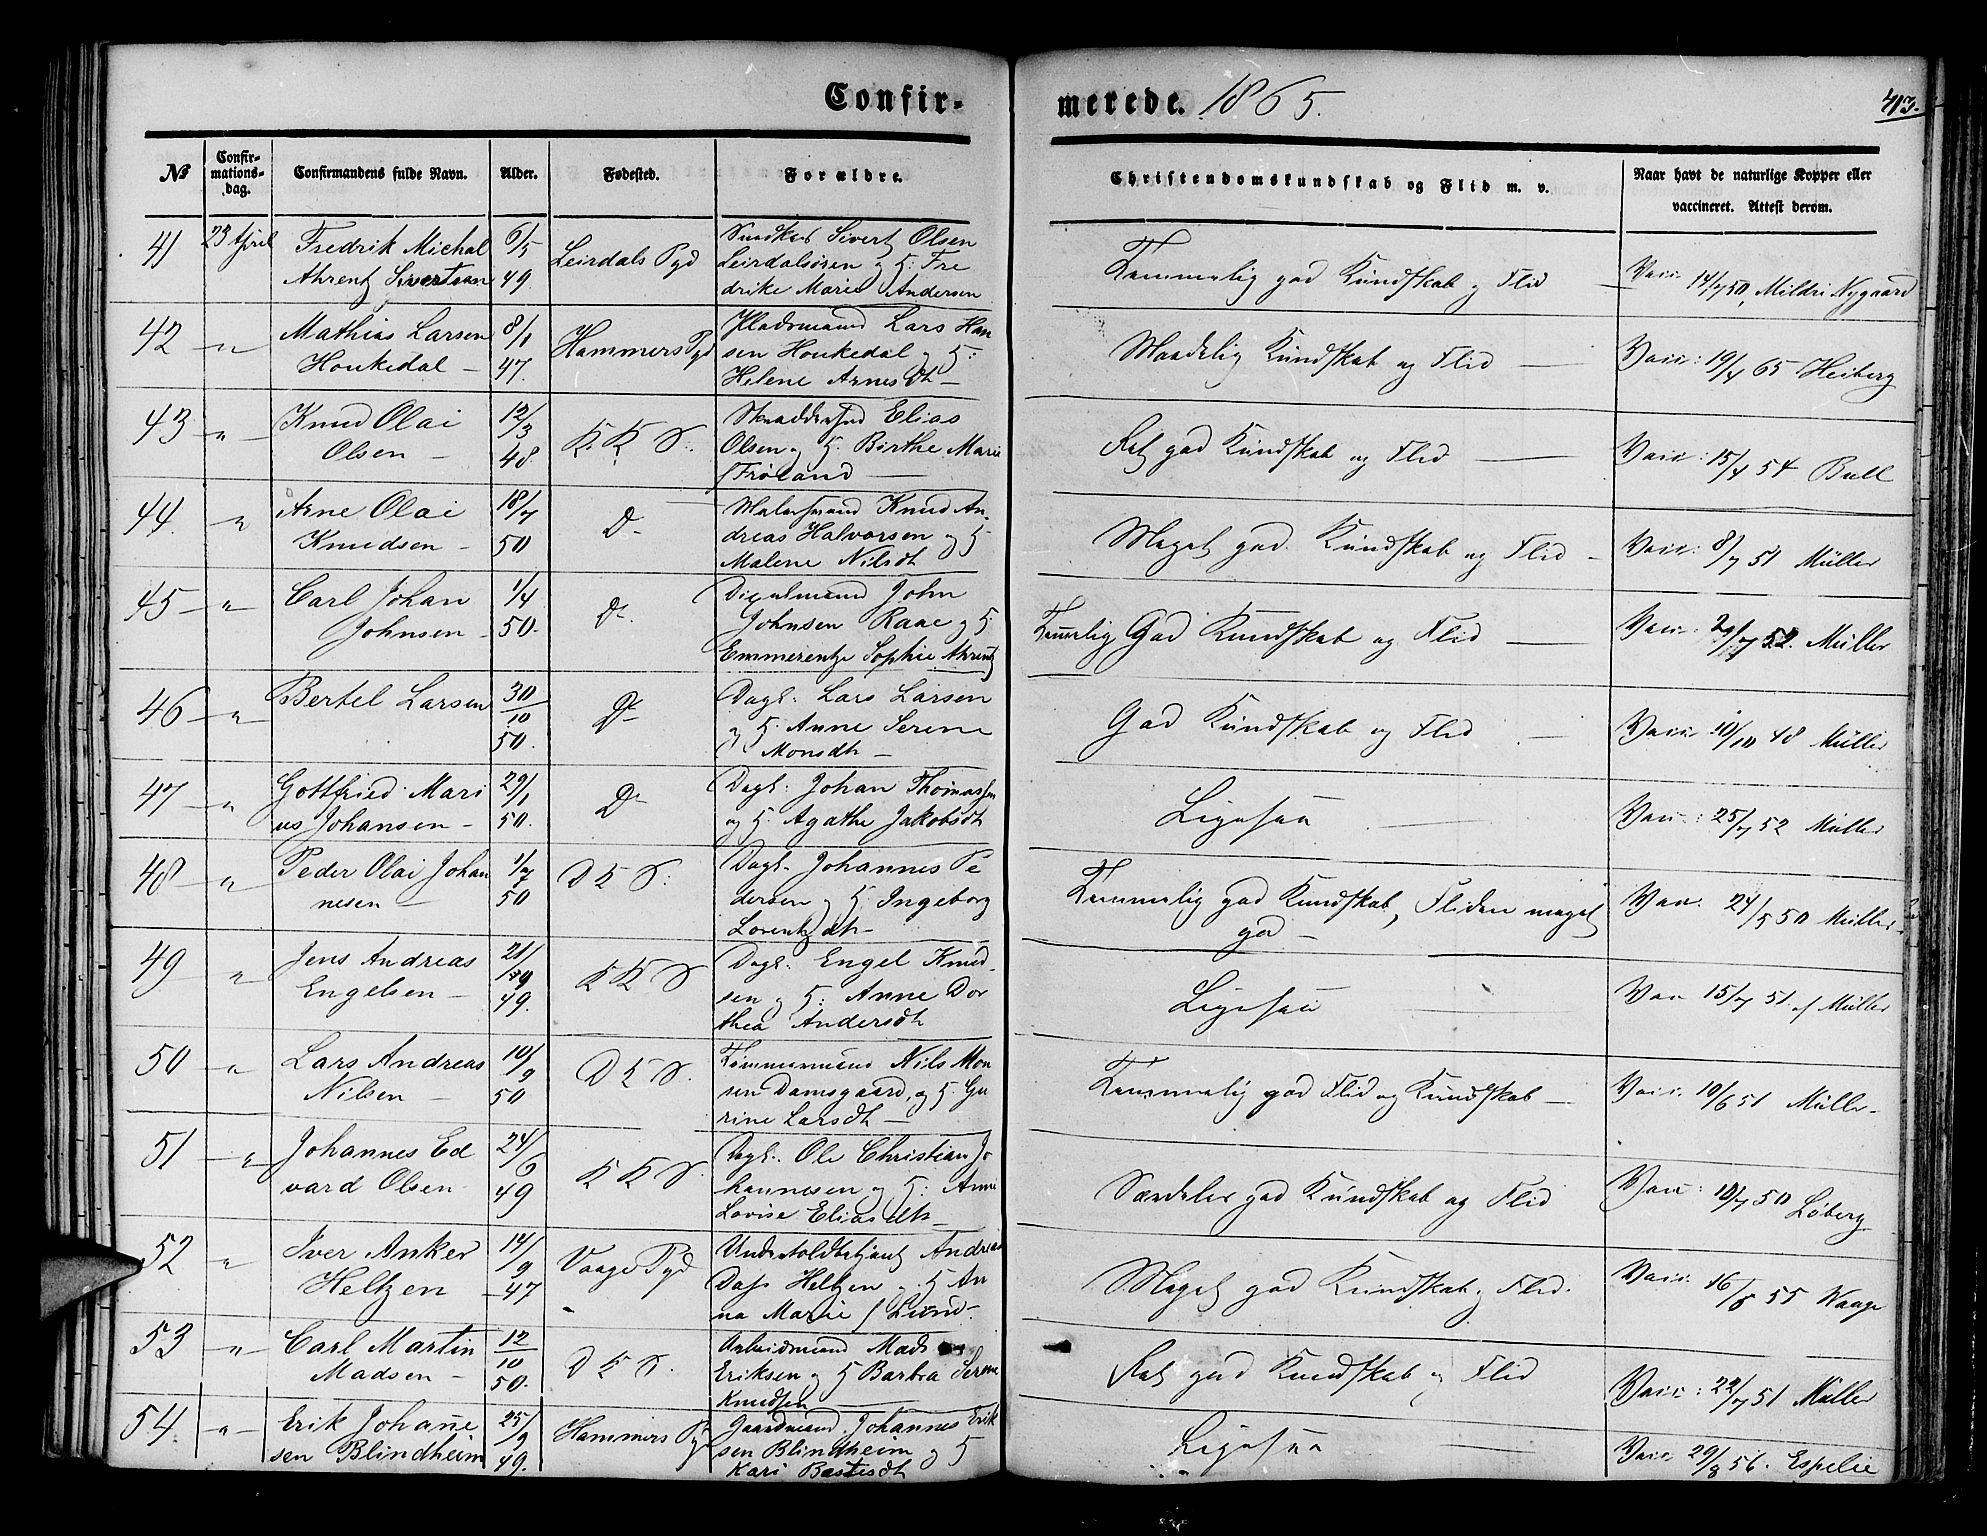 Confir-
merede. 1865.
413.
No
Confir-
mations-
dag.
Confirmandens fulde Navn.
Alder.
Fødested.
Forældre.
Christendomskundskab og Flid m. v.
Naar havt de naturlige Kopper eller
vaccineret. Attest derom.
41 23 April Fredrik Michal 6/5 Leirdals Pgd Sivert Olsen
Ahrentz Sivertsen 49. Leirdalsøren og H. Fre
drike Marie Andersen
Temmelig god Kundskab og Flid — Vacc. 14/7 50, Mildri Nygaard
42 " Mathias Larsen 8/1 Hammers Pgd Pladsmand Lars Han
Houkedal — 47. sen Houkedal og H:
Helene Arnesdt —
Maadelig Kundskab og Flid — Vacc: 19/4 65 Heiberg
43 " Knud Olai 12/3 K K S. Elias
Olsen — 48 Olsen og H. Birthe Marie
Frøland
Ret god Kundskab og Flid — Vacc: 15/4 54 Bull
44. " Arne Olai 18/7 D- Knud An-
Knudsen — 50 dreas Halvorsen og H
Malene Nilsdt
Meget god Kundskab og Flid — Vacc: 8/7 51 Müller
45 " Carl Johan 1/4 D- John
Johnsen — 50. Johnsen Raae og H
Emmerentze Sophie Ahrentz
Temlig God Kundskab og Flid — Vacc. 52. Müller
46 " Bertel Larsen 30/10 D- Dagl. Lars Larsen
50. og H. Anne Serene
Monsdt —
God Kundskab og Flid — Vacc. 48 Müller
47 " Gottfried Mari 29/1 D- Dagl. Johan Thomassen
us Johansen — 50. og H. Agathe Jakobsdt
Ligesaa — Vacc: 25/7 52 Müller
48 " Peder Olai Johan 1/7 D K S. Dagl. Johannes Pe
nesen — 50 dersen og H. Ingeborg
Lorentzdt —
Temmelig god Kundskab, Fliden meget
god — Vacc. 24/5 50 Müller
49 " Jens Andreas 21/ K K S Dagl. Engel Knud-
Engelsen — 49. sen og H: Anne Dor
thea Andersdt
Ligesaa Vacc 15/7 51. af Müller
50 " Lars Andreas 10/9 D K S. Tømmermand Nils Mon
Nilsen — 50 sen Damsgaard, og H. Gu
rine Larsdt —
Temmelig god Flid og Kundskab — Vacc. 10/6 51 Müller
51 " Johannes Ed 24/6 K K S. Dagl. Ole Christian Jo
vard Olsen 49 hannesen og H: Anne
Lovise Eliasdt
Særdeles god Kundskab og Flid Vacc: 50 Løberg
52 " Iver Anker 14/9 Vaage Pgd Undertoldbetjent Andreas
Heltzen — 47 Dass Heltzen og H An
na Marie f. Lund —
Meget god Kundskab og Flid. Vacc. 16/5 55 Waage
53 " Carl Martin 12/10 D K S. Arbeidsmand Mads
Madsen — 50. Eriksen og H Barbra Serene
Knudsen
Ret god Kundskab og Flid Vacc: 22/7 51 Müller
54 " Erik Johane 25/9 Hammers P Gaardmand Johannes Erik
sen Blindheim 49. sen Blindheim og H
Kari Bastesdt
Ligesaa — Vacc 29/8 56. Espelie